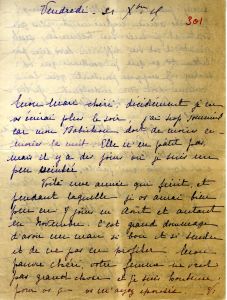 Vendredi - 31 Xbre 15
301
Mon Marc chéri, décidément je ne
vs écrirai plus le soir, j'ai trop sommeil
car mon Babichon dort de moins en
moins la nuit. Elle n'en pâtit pas,
mais il y a des jours où je suis un
peu éreintée.
Voilà une année qui finit, et
pendant laquelle je vs aurai bien
peu vu, 8 jours en Août et autant
en Novembre. C'est grand dommage
d'avoir un mari si bon et si tendre
et de ne pas en profiter. Mon
pauvre chéri, votre femme ne vaut
pas grand chose et je suis honteuse
pour vs que vs m'ayez épousée